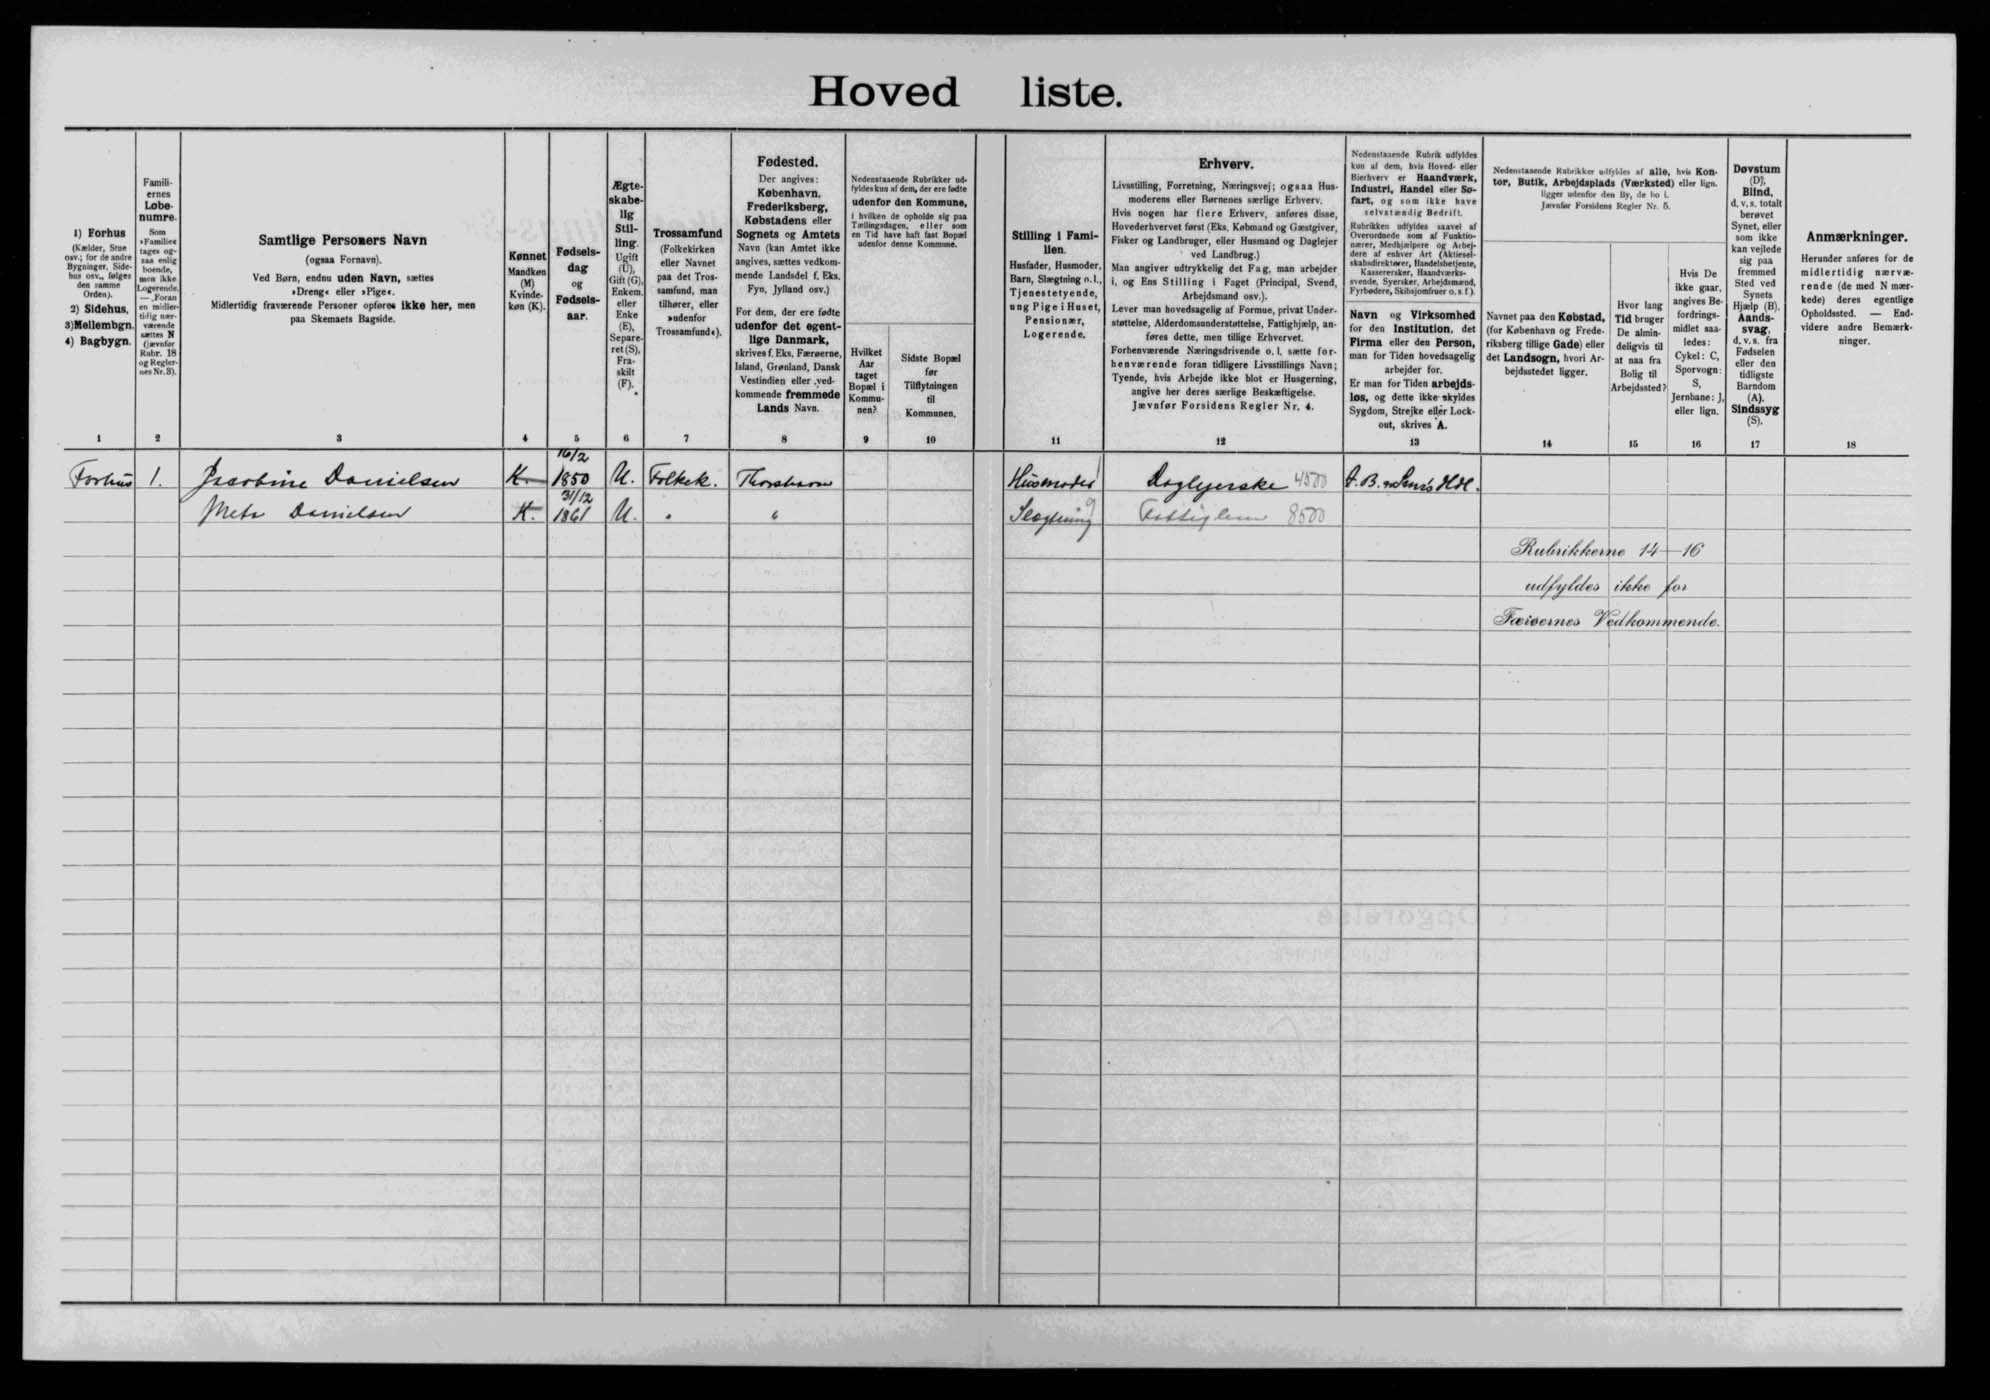 Hoved liste.
1) Forhus
(Kælder, Stue
osv.; for de andre
Bygninger, Side-
hus osv., følges
den samme
Orden).
2) Sidehus,
3) Mellembgn.
4) Bagbygn.
Famili-
ernes
Løbe-
numre.
Som
»Familie«
tages og-
saa enlig
boende,
men ikke
Logerende.
— Foran
en midler-
tidig nær-
værende
sættes N
(jævnfør
Rubr. 18
og Regler-
nes Nr. 3).
Samtlige Personers Navn
(ogsaa Fornavn).
Ved Børn, endnu uden Navn, sættes
»Dreng« eller »Pige«.
Midlertidig fraværende Personer opføres ikke her, men
paa Skemaets Bagside.
Kønnet
Mandkøn
(M)
Kvinde-
køn (K).
Fødsels-
dag
og
Fødsels-
aar.
Ægte-
skabe-
lig
Stil-
ling.
Ugift
(U),
Gift (G),
Enkem.
eller
Enke
(E),
Separe-
ret (S),
Fra-
skilt
(F).
Trossamfund
(Folkekirken
eller Navnet
paa det Tros-
samfund, man
tilhører, eller
»udenfor
Trossamfund«).
Fødested.
Der angives:
København,
Frederiksberg,
Købstadens eller
Sognets og Amtets
Navn (kan Amtet ikke
angives, sættes vedkom-
mende Landsdel f. Eks.
Fyn, Jylland osv.)
For dem, der ere fødte
udenfor det egent-
lige Danmark,
skrives f. Eks. Færøerne,
Island, Grønland, Dansk
Vestindien eller ved-
kommende fremmede
Lands Navn.
Nedenstaaende Rubrikker ud-
fyldes kun af dem, der ere fødte
udenfor den Kommune,
i hvilken de opholde sig paa
Tællingsdagen, eller som
en Tid have haft fast Bopæl
udenfor denne Kommune.
Hvilket
Aar
taget
Bopæl i
Kommu-
nen?
Sidste Bopæl
før
Tilflytningen
til
Kommunen.
Stilling i Fami-
lien.
Husfader, Husmoder,
Barn, Slægtning o. l.,
Tjenestetyende,
ung Pige i Huset,
Pensionær,
Logerende.
Erhverv.
Livsstilling, Forretning, Næringsvej; ogsaa Hus-
moderens eller Børnenes særlige Erhverv.
Hvis nogen har flere Erhverv, anføres disse,
Hovederhvervet først (Eks. Købmand og Gæstgiver,
Fisker og Landbruger, eller Husmand og Daglejer
ved Landbrug.)
Man angiver udtrykkelig det Fag, man arbejder
i, og Ens Stilling i Faget (Principal, Svend,
Arbejdsmand osv.).
Lever man hovedsagelig af Formue, privat Under-
støttelse, Alderdomsunderstøttelse, Fattighjælp, an-
føres dette, men tillige Erhvervet.
Forhenværende Næringsdrivende o. l. sætte for-
henværende foran tidligere Livsstillings Navn;
Tyende, hvis Arbejde ikke blot er Husgerning,
angive her deres særlige Beskæftigelse.
Jævnfør Forsidens Regler Nr. 4.
Nedenstaaende Rubrik udfyldes
kun af dem, hvis Hoved- eller
Bierhverv er Haandværk,
Industri, Handel eller Sø-
fart, og som ikke have
selvstændig Bedrift.
Rubrikken udfyldes saavel af
Overordnede som af Funktio-
nærer, Medhjælpere og Arbej-
dere af enhver Art (Aktiesel-
skabsdirektører, Handelsbetjente,
Kasserersker, Haandværks-
svende, Syersker, Arbejdsmænd,
Fyrbødere, Skibsjomfruer o. s. f.).
Navn og Virksomhed
for den Institution, det
Firma eller den Person,
man for Tiden hovedsagelig
arbejder for.
Er man for Tiden arbejds-
løs, og dette ikke skyldes
Sygdom, Strejke eller Lock-
out, skrives A.
Nedenstaaende Rubrikker udfyldes af alle, hvis Kon-
tor, Butik, Arbejdsplads (Værksted) eller lign.
ligger udenfor den By, de bo i.
Jævnfør Forsidens Regler Nr. 5.
Navnet paa den Købstad,
(for København og Frede-
riksberg tillige Gade) eller
det Landsogn, hvori Ar-
bejdsstedet ligger.
Hvor lang
Tid bruger
De almin-
deligvis til
at naa fra
Bolig til
Arbejdssted?
Hvis De
ikke gaar,
angives Be-
fordrings-
midlet saa-
ledes:
Cykel: C,
Sporvogn:
S,
Jernbane: J,
eller lign.
Døvstum
(D),
Blind,
d. v. s. totalt
berøvet
Synet, eller
som ikke
kan vejlede
sig paa
fremmed
Sted ved
Synets
Hjælp (B).
Aands-
svag,
d. v. s. fra
Fødselen
eller den
tidligste
Barndom
(A).
Sindssyg
(S).
Anmærkninger.
Herunder anføres for de
midlertidig nærvæ-
rende (de med N mær-
kede) deres egentlige
Opholdssted. — End-
videre andre Bemærk-
ninger.
1 2 3 4 5 6 7 8 9 10 11 12 13 14 15 16 17 18
Forhus 1. Jacobine Danielsen K. 16/2 1850 U. Folkek. Thorshavn Husmoder Daglejerske 4500
Meta Danielsen K. 31/12 1861 U. " " Slægtning 9 Fattiglem 8500
Rubrikkerne 14—16
udfyldes ikke for
Færøernes Vedkommende.